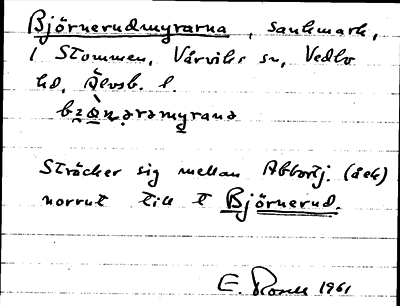 Björnerudmyrarna, sankmark,
i Stommen, Vårviks sn, Vedbo
hd, Älvsb. l.
Sträcker sig mellan Abbortj. (åek)
norrut till t Björnerud.
E. Rosell 1961